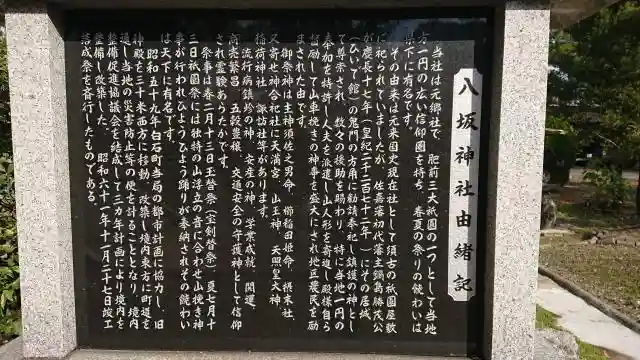 八坂神社由緒記
当社は元郷社で、肥前三大祇園の一つとして当地
方一円の広い信仰圏を持ち、春夏の祭りの賑わいは
県下に有名です。
その由来は元来国史現在社として須古の祇園屋敷
に祀られていましたが、佐嘉藩初代藩主鍋島勝茂公
が慶長十七年(皇紀二千二百七十二年)にその居城
(ひいで館)の鬼門の方角に勧請奉祀し鎮護の神とし
て尊崇され、数々の援助を賜わり、特に当地一円の
奉加を特許し人夫を派遣し山人形を寄進し殿様自ら
督励して山車挽きの神事を盛大にされ地区農民を励
まされた由です。
御祭神は主神須佐之男命、櫛稲田姫命、摂末社
又寄せ神合祀社に天満宮、山王神、天照皇大神
稲荷神社、諏訪社等があります。
流行病鎮めの神、安産の神、学業成就、開運、
商売繁昌、五穀豊穣、交通安全の守護神として信仰
され霊験あらたかです。
祭事は春二月十三日玉替祭(宝剣替祭)夏七月十
三日祇園祭には独特の山浮立の音に合わせ山挽き神
事が行われひょうひょう踊りが奉納されその賑わい
は天下に有名です。
昭和五十九年白石町当局の都市計画に協力し、旧
神殿を三十米西方に移動、改築し境内東方に町道を
通し当地の災害防止等の便を計ることとなり、境内
整備促進協議会を結成して三カ年計画により境内を
整備し改築した。 昭和六十一年十一月二十七日竣工
落成祭を斉行したものである。